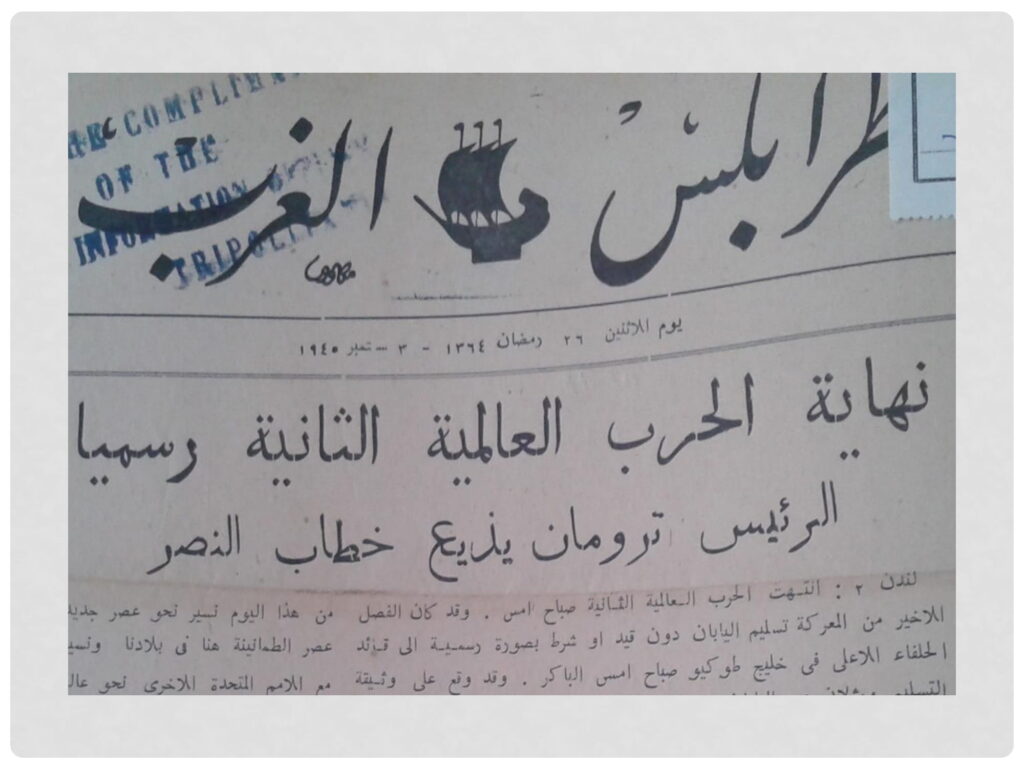 COMPLIME
OF THE
INFORMATION OFFICE
TRIPOLITA
طرابلس الغرب
يوم الاثنين ٢٦ رمضان ١٣٦٤ - ٣ سبتمبر ١٩٤٥
نهاية الحرب العالمية الثانية رسميا
الرئيس ترومان يذيع خطاب النصر
لندن ٢ : انتهت الحرب العالمية الثانية صباح امس . وقد كان الفصل
الاخير من المعركة تسليم اليابان دون قيد او شرط بصورة رسمية الى قائد
الحلفاء الاعلى فى خليج طوكيو صباح امس الباكر . وقد وقع على وثيقة
التسليم
من هذا اليوم نسير نحو عصر جديد
عصر الطمانينة هنا فى بلادنا ونسي
مع الامم المتحدة الاخرى نحو عال